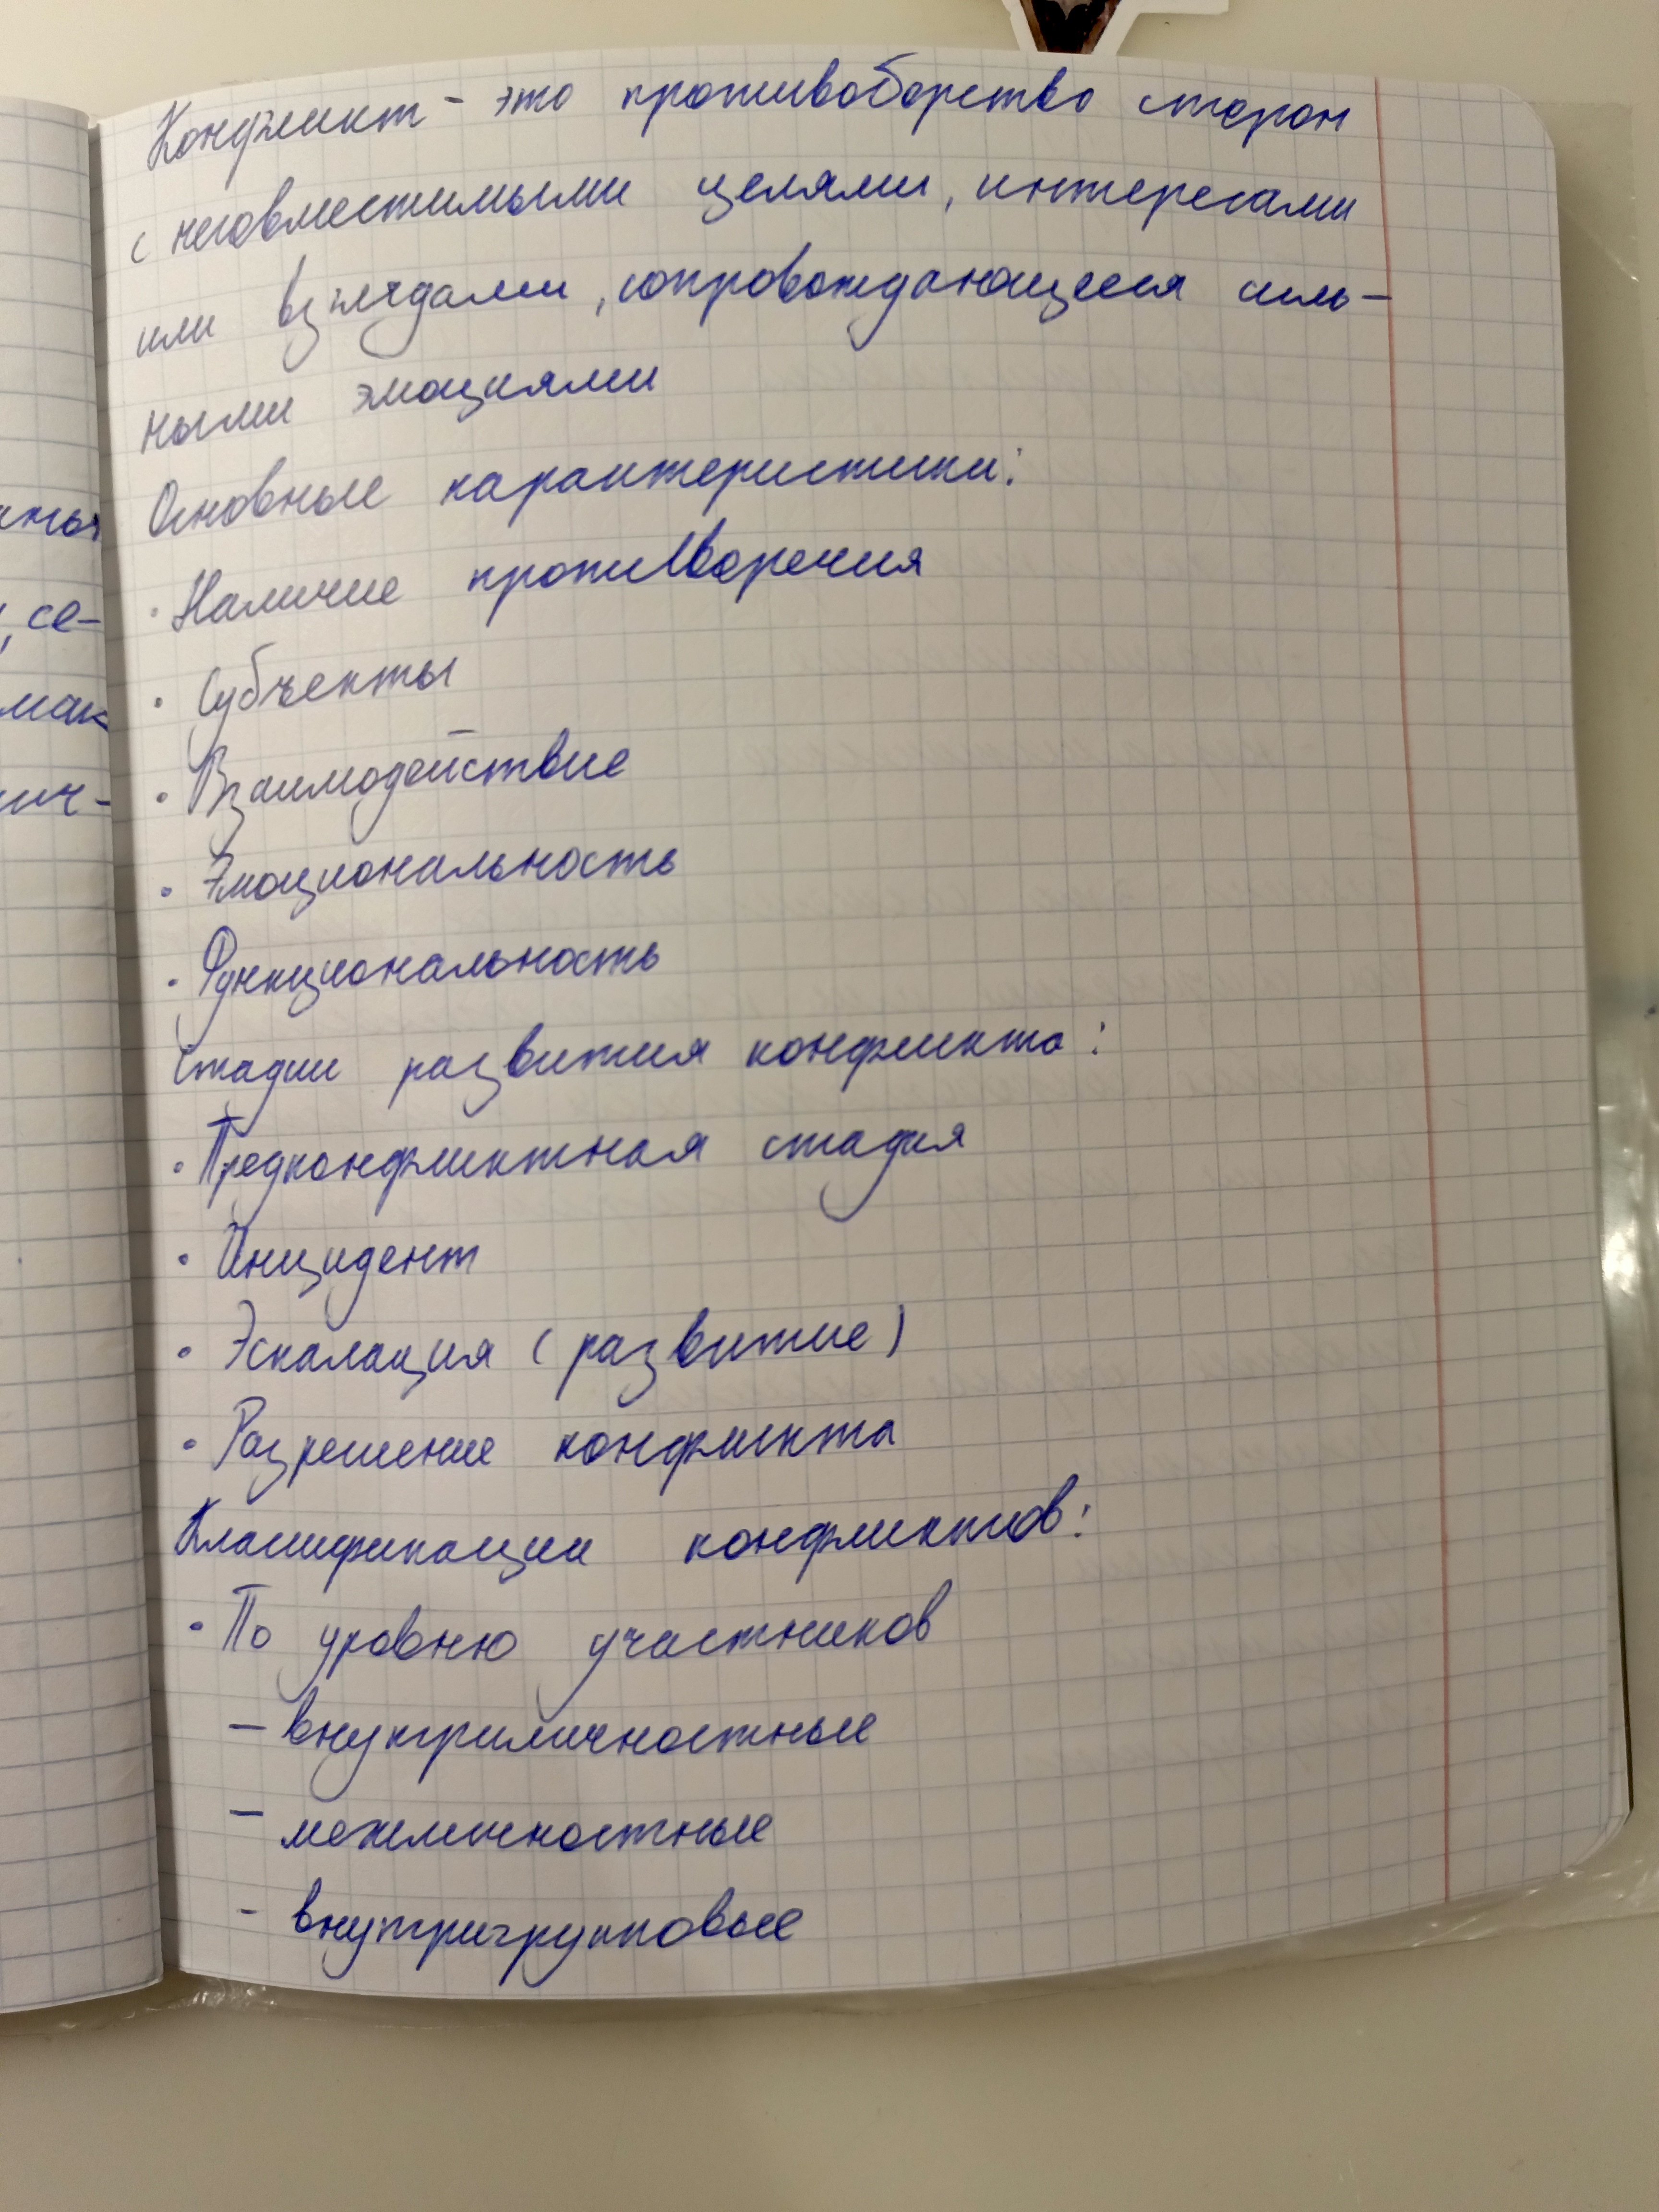 Конфликт - это противоборство сторон
с несовместимыми целями, интересами
или взглядами, сопровождающееся силь-
ными эмоциями
Основные характеристики:
· Наличие противоречия
· Субъекты
· Взаимодействие
· Эмоциональность
· Функциональность
Стадии развития конфликта:
· Предконфликтная стадия
· Инцидент
· Эскалация (развитие)
· Разрешение конфликта
Классификации конфликтов:
· По уровню участников
- внутриличностные
- межличностные
- внутригрупповые
, се-
мак
ич-